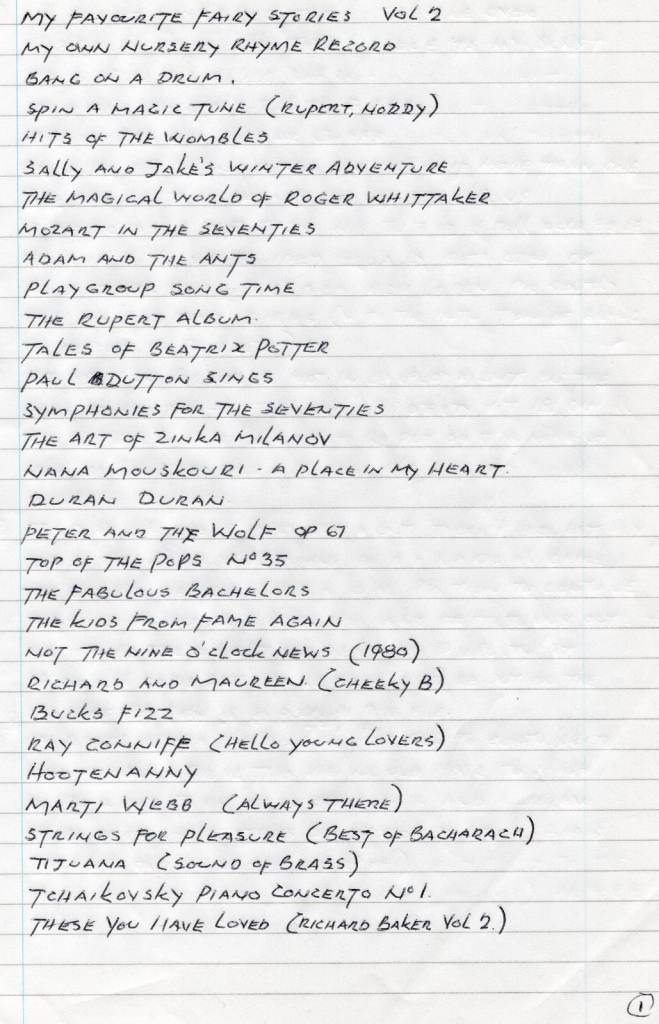 MY FAVOURITE FAIRY STORIES VOL 2
MY OWN NURSERY RHYME RECORD
BANG ON A DRUM.
SPIN A MAGIC TUNE (RUPERT, NODDY)
HITS OF THE WOMBLES
SALLY AND JAKE'S WINTER ADVENTURE
THE MAGICAL WORLD OF ROGER WHITTAKER
MOZART IN THE SEVENTIES
ADAM AND THE ANTS
PLAYGROUP SONG TIME
THE RUPERT ALBUM.
TALES OF BEATRIX POTTER
PAUL DUTTON SINGS
SYMPHONIES FOR THE SEVENTIES
THE ART OF ZINKA MILANOV
NANA MOUSKOURI - A PLACE IN MY HEART.
DURAN DURAN
PETER AND THE WOLF OP 67
TOP OF THE POPS No 35
THE FABULOUS BACHELORS
THE KIDS FROM FAME AGAIN
NOT THE NINE O'CLOCK NEWS (1980)
RICHARD AND MAUREEN. (CHEEKY B)
BUCKS FIZZ
RAY CONNIFF (HELLO YOUNG LOVERS)
HOOTENANNY
MARTI WEBB (ALWAYS THERE)
STRINGS FOR PLEASURE (BEST OF BACHARACH)
TIJUANA (SOUND OF BRASS)
TCHAIKOVSKY PIANO CONCERTO No 1.
THESE YOU HAVE LOVED (RICHARD BAKER VOL 2.)
1